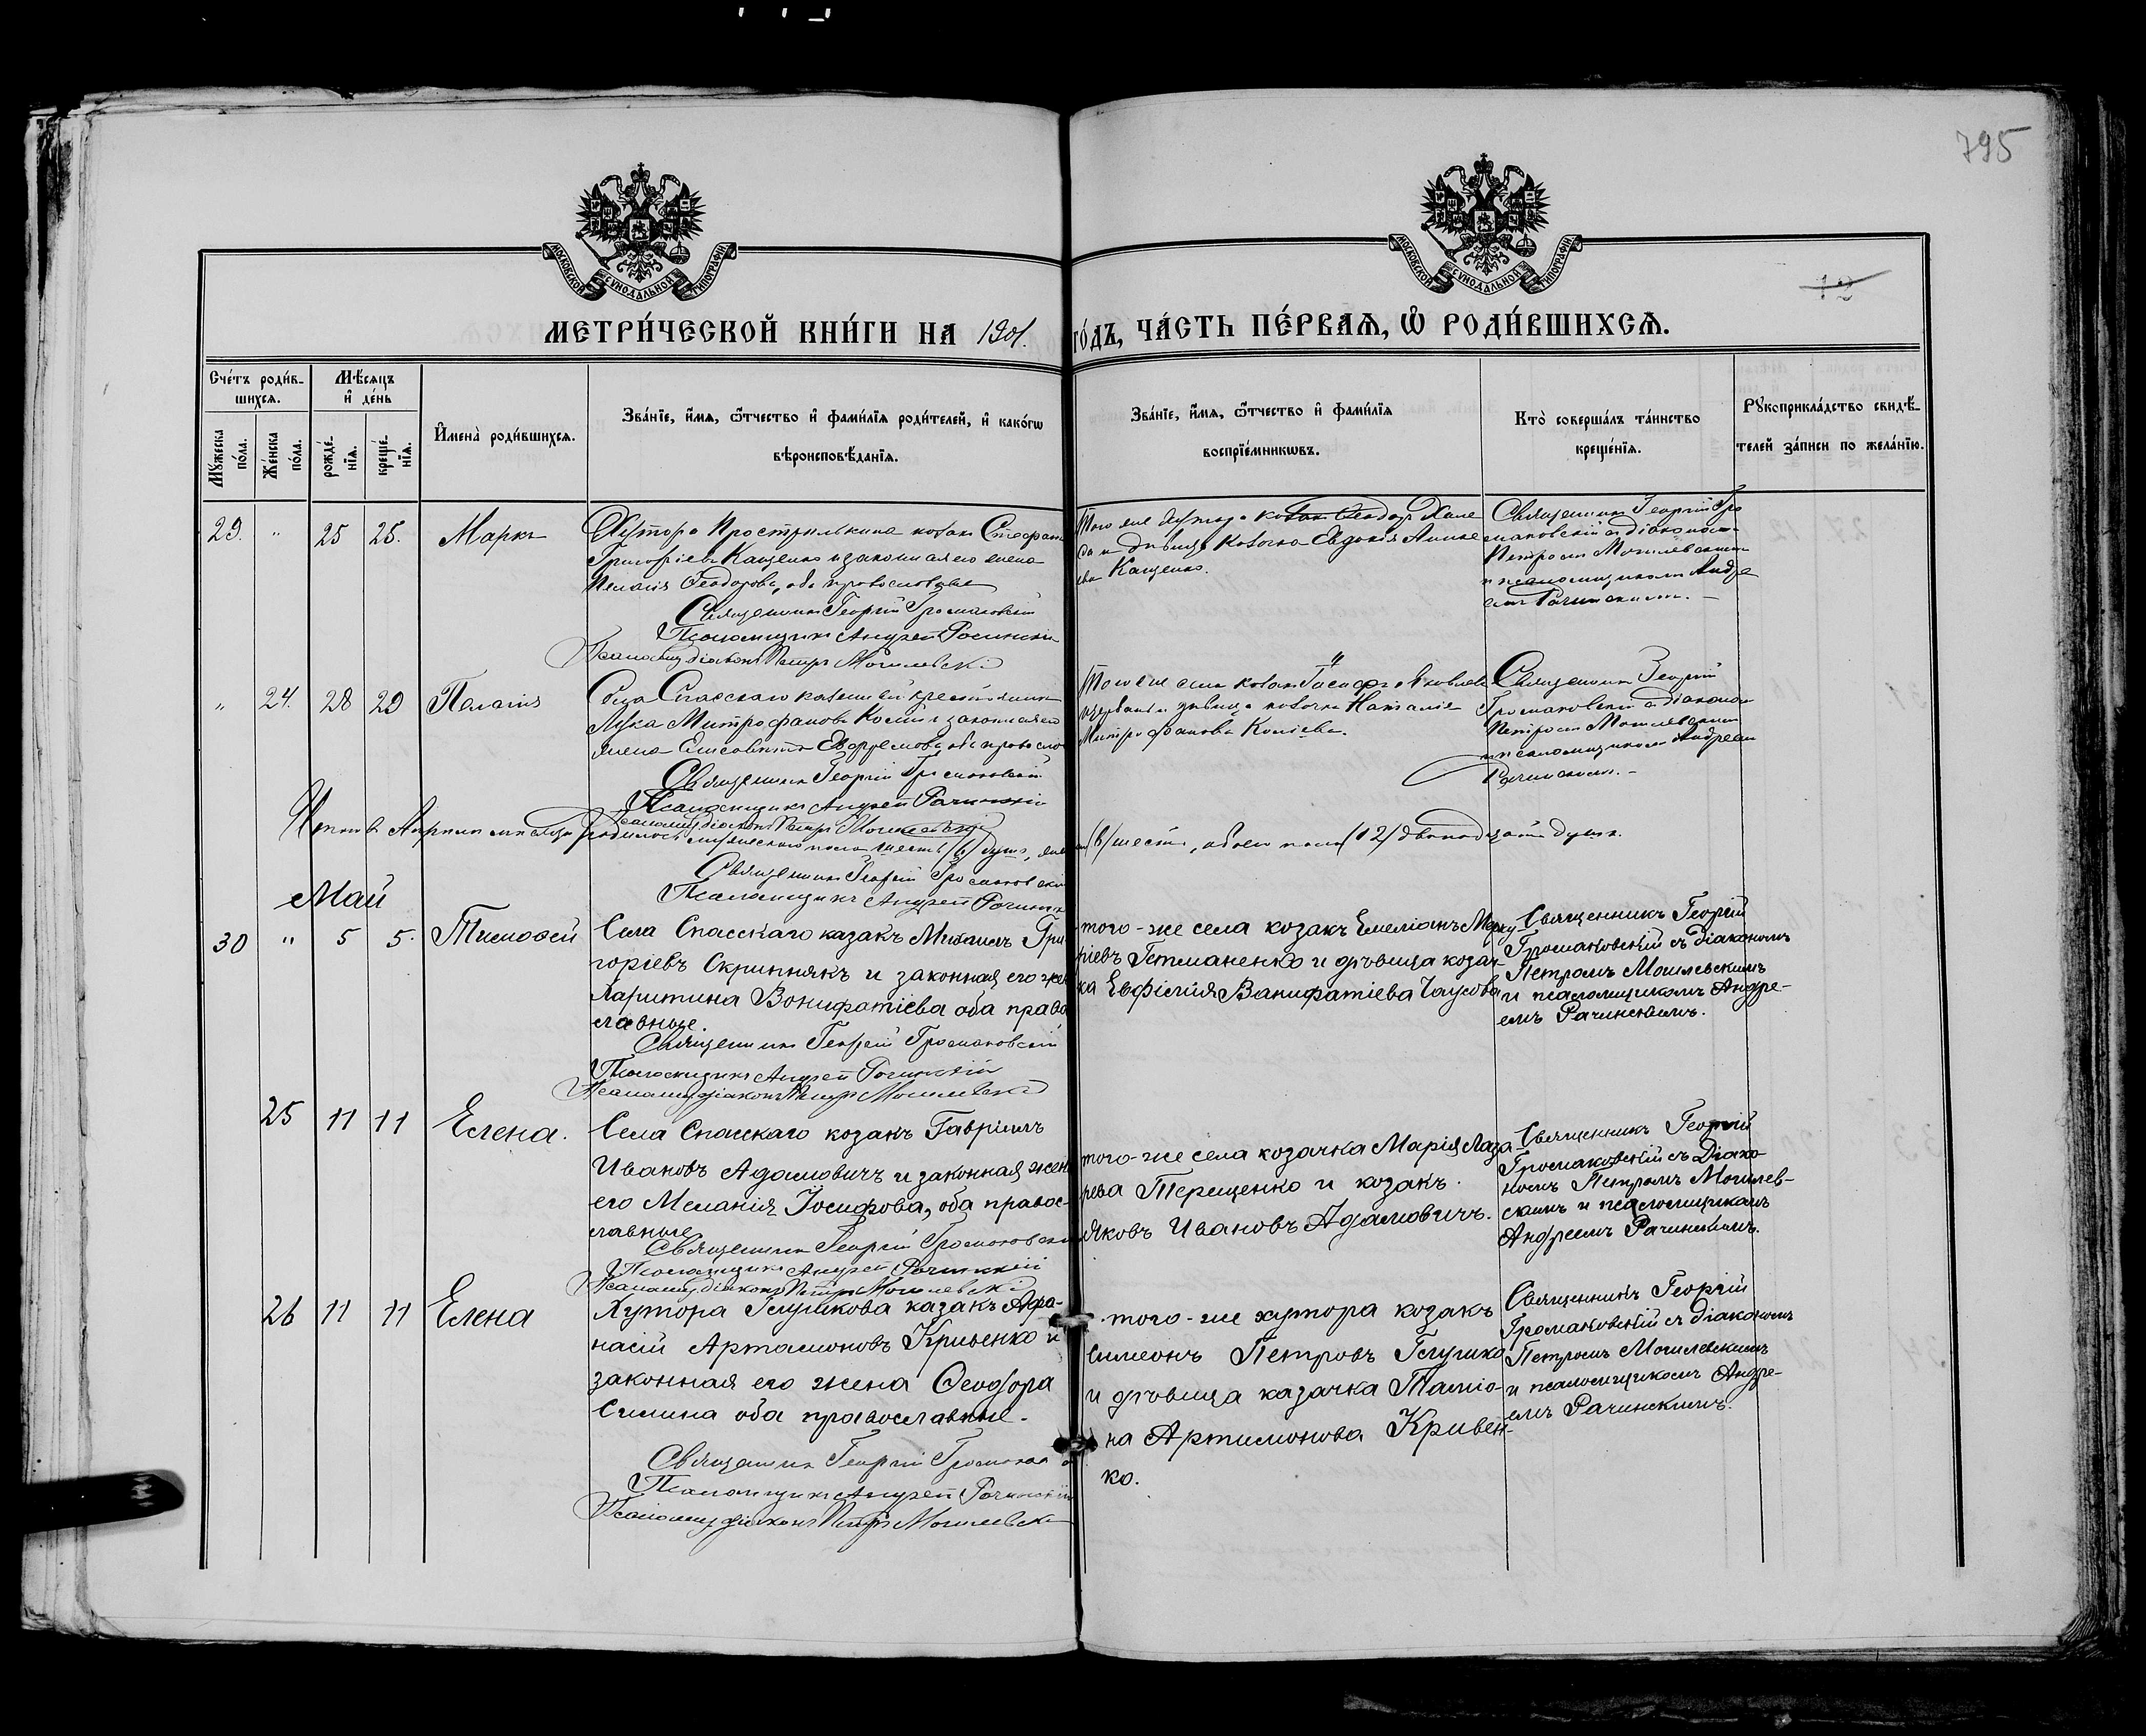 795
МОСКОВСКОЙ СѴНОДАЛЬНОЙ ТИПОГРАФІИ
МОСКОВСКОЙ СѴНОДАЛЬНОЙ ТИПОГРАФІИ
12
МЕТРИ́ЧЕСКОЙ КНИ́ГИ НА 1901. ГО́ДЪ, ЧА́СТЬ ПЕ́РВАѦ, Ѽ РОДИ́ВШИХСѦ.
Сче́тъ роди́в-
шихсѧ.
Мꙋ́жеска по́ла.
Же́нска по́ла.
Мѣ́сѧцъ и҆ де́нь
рожде́-нїѧ.
креще́-нїѧ.
И҆мена̀ роди́вшихсѧ.
Зва́нїе, и҆́мѧ, ѻ҆́тчество и҆ фами́лїѧ роди́телей, и҆ како́гѡ
вѣроисповѣ́данїѧ.
Зва́нїе, и҆́мѧ, ѻ҆́тчество и҆ фами́лїѧ
воспрїе́мникѡвъ.
Кто̀ соверша́лъ та́инство
креще́нїѧ.
Рꙋкоприкла́дство свидѣ́-
телей за́писи по жела́нїю.
29. " 25 25. Маркъ
Хутора Прострилькина козакъ Стефанъ
Григоріевъ Кащенко и законная его жена
Пелагія Ѳеодорова, оба православные
Священникъ Георгій Громаковскій
Псаломщикъ Андрей Рачинскій
Псаломщ. діаконъ Петръ Могилевскій
Того же хутора козакъ Ѳеодоръ
и дѣвица козачка Евдокія
Кащенко.
Священникъ Георгій Гро
маковскій съ діакономъ
Петромъ Могилевскимъ
и псаломщикомъ Андре
емъ Рачинскимъ.-
" 24. 28 29 Пелагія
Села Спасскаго казенный крестьянинъ
Лука Митрофановъ и законная его
жена Елисавета Евфремова, оба правосл
Священникъ Георгій Громаковскій
Псаломщикъ Андрей Рачинскій
Псаломщ. діаконъ Петръ Могилевскій
Того же села козакъ Іосифъ Яковлевъ
и дѣвица козачка Наталія
Митрофанова
Священникъ Георгій
Громаковскій съ діакономъ
Петромъ Могилевскимъ
и псаломщикомъ Андреемъ
Рачинскимъ.-
Итого въ Апрѣлѣ мѣсяцѣ родилось мужескаго пола шесть (6) душъ, (6) шесть, обоего пола (12) двенадцать душъ.
Священникъ Георгій Громаковскій
Псаломщикъ Андрей Рачинск
Май
30 " 5 5. Тимоѳей
Села Спасскаго казакъ Михаилъ Гри
горіевъ Скрипнякъ и законная его жен
Харитина Вонифатіева оба право
славные.
Священникъ Георгій Громаковскій
Псаломщикъ Андрей Рачинскій
Псаломщ. діаконъ Петръ Могилевскій
того-же села козакъ Емеліанъ Мерку
ріевъ Гетманенко и дѣвица козач-
ка Евфимія Ванифатіева Чаусова
Священникъ Георгій
Громаковскій съ діакономъ
Петромъ Могилевскимъ
и псаломщикомъ Андре-
емъ Рачинскимъ.
25 11 11 Елена.
Села Спасскаго козакъ Гавріилъ
Ивановъ Адамовичъ и законная жен
его Меланія Іосифова, оба правос-
лавные
Священникъ Георгій Громаковскій
Псаломщикъ Андрей Рачинскій
Псаломщ. діаконъ Петръ Могилевскій
того-же села козачка Марія Лаза
рева Терещенко и козакъ
Яковъ Ивановъ Адамовичъ.
Священникъ Георгій
Громаковскій съ Діако-
номъ Петромъ Могилев-
скимъ и псаломщикомъ
Андреемъ Рачинскимъ.
26 11 11 Елена
Хутора Глушкова казакъ Афа-
насій Артамоновъ Кривенко и
законная его жена Ѳеодора
Симина оба православные.
Священникъ Георгій Громаков
Псаломщикъ Андрей Рачинскій
Псаломщ. діаконъ Петръ Могилевскі
того-же хутора козакъ
Симеонъ Петровъ Глушко
и дѣвица казачка Татіа-
на Артимонова Кривен-
ко.
Священникъ Георгій
Громаковскій съ діакономъ
Петромъ Могилевскимъ
и псаломщикомъ Андре-
емъ Рачинскимъ.